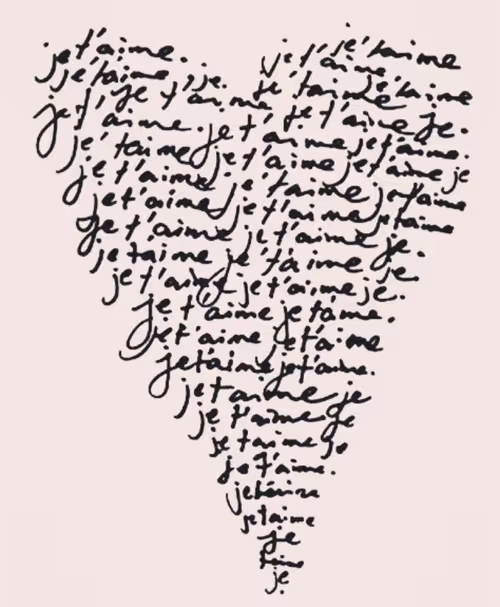 je t'aime. je t'aime
je t'aime, je. je t'aime je t'aime
je t'aime je t'aime je t'aime je.
je t'aime. je t'aime je t'aime.
je t'aime je t'aime je t'aime je
je t'aime je t'aime je t'aime
je t'aime je t'aime je t'aime
je t'aime je t'aime je.
je t'aime je t'aime je.
je t'aime je t'aime je.
je t'aime je t'aime.
je t'aime je t'aime
je t'aime je t'aime.
je t'aime je
je t'aime je
je t'aime je
je t'aime.
je t'aime
je t'aime
je
t'aime
je